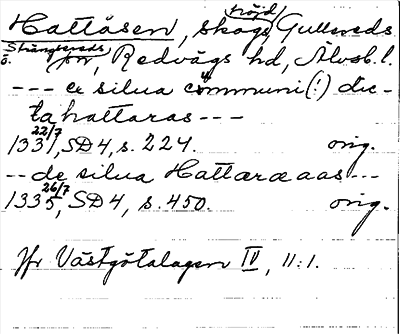 Hattåsen, skogshöjd, Gullereds
Strängsereds
ö. sn, Redvägs hd, Älvsb. l.
--- de silua communi (!) dic-
ta hattaras ---
1331 22/7, SD 4, s. 224. orig.
-- de silua Hattaraaas ---
1335 26/7, SD 4, s. 450. orig.
Jfr Västgötalagen IV, 11:1.